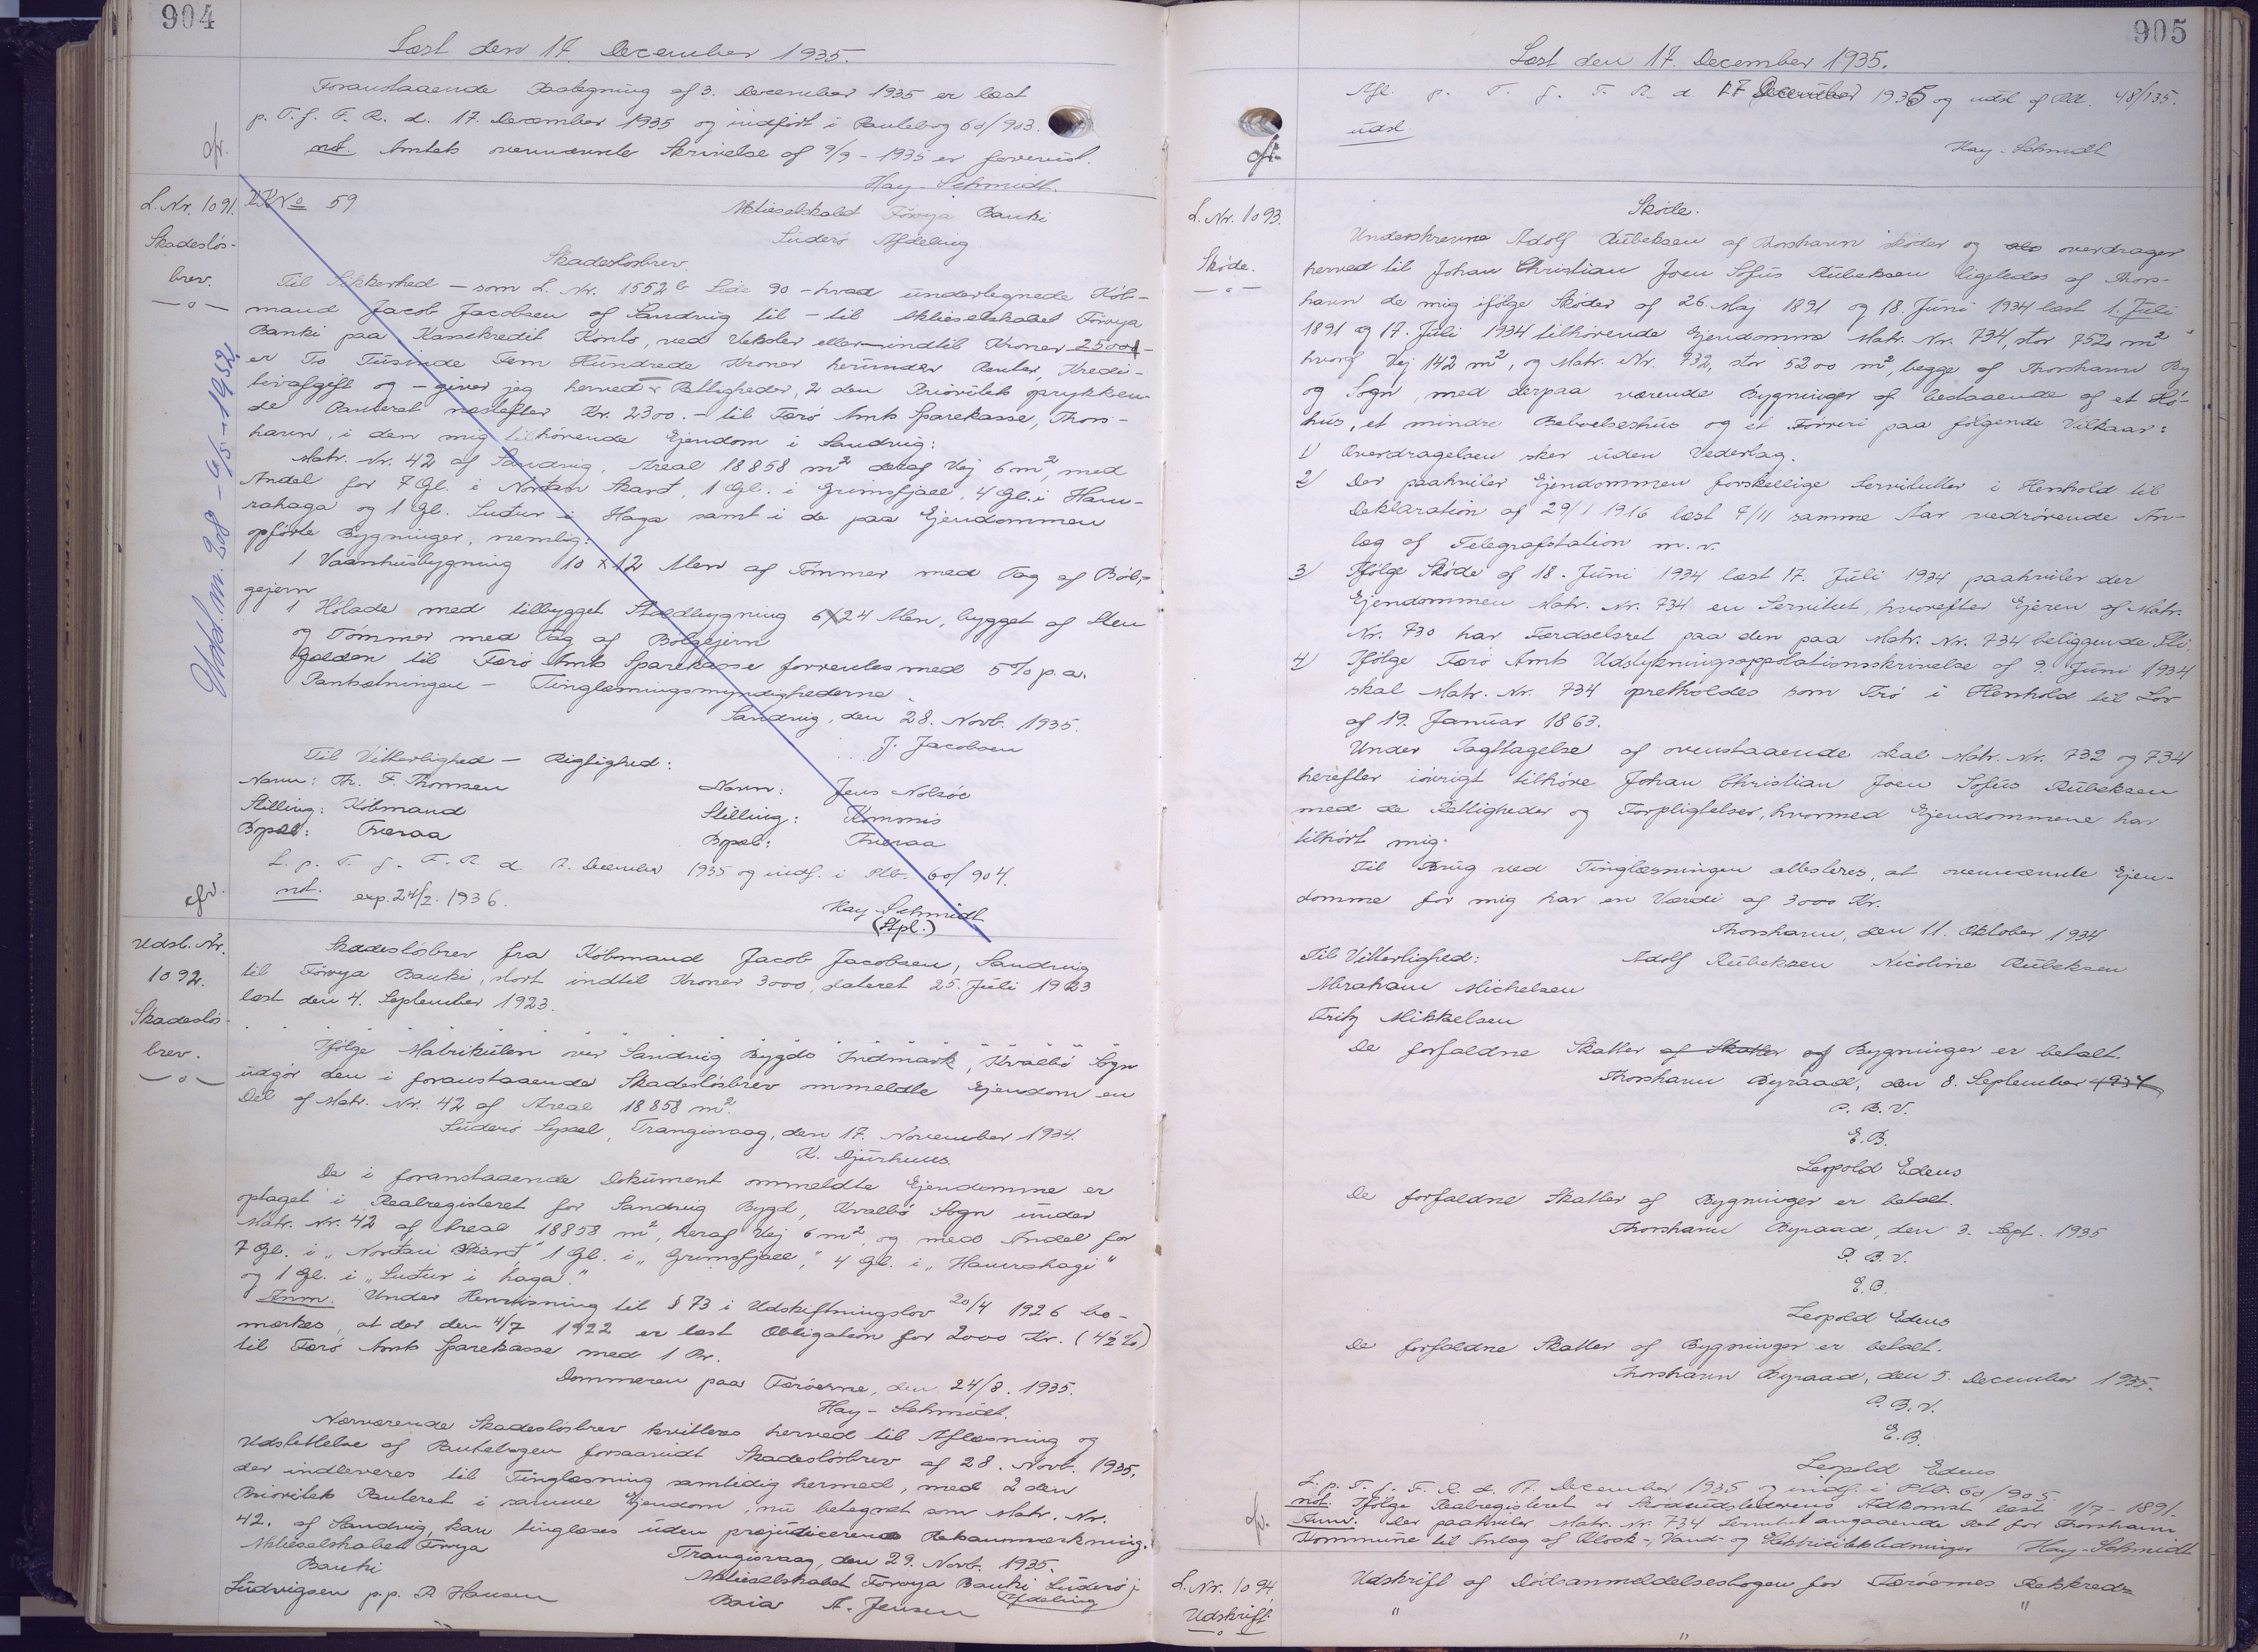 904
Læst den 17. December 1935.
Foranstaaende Paategning af 3. December 1935 er læst
p. T. f. F. R. d. 17. December 1935 og indført i Pantebog 60/903.
not. Amtets ovennævnte Skrivelse af 9/9 - 1935 er forevist.
Hay-Schmidt.
cfr.
L. Nr. 1091.
Skadesløs-
brev.
KK No 59
Aktieselskabet Föroya Banki
Suderø Afdeling.
Skadesløsbrev.
Til Sikkerhed - som L. Nr. 1552 b Side 90 - hvad undertegnede Køb-
mand Jacob Jacobsen af Sandvig til - til Aktieselskabet Föroya
Banki paa Kassekredit Konto, ved Veksler eller - indtil Kroner 2500 -
er To Tusinde Fem Hundrede Kroner herunder Renter, Kredi-
tivafgift og - giver jeg herved - Rettigheder, 2 den Prioritets oprykken-
de Panteret næstefter Kr. 2300. - til Færø Amts Sparekasse, Thors-
havn, i den mig tilhørende Ejendom i Sandvig:
Matr. Nr. 42 af Sandvig, Areal 18858 m² deraf Vej 6 m², med
Andel for 7 Gl. i Nordan Skard, 1 Gl. i Grimsfjall, 4 Gl. i Ham-
rahaga og 1 Gl. Sudur i Haga samt i de paa Ejendommen
opførte Bygninger, nemlig:
1 Vaanhusbygning 10 x 12 Alen af Tømmer med Tag af Bøl-
gejern
1 Hølade med tilbygget Staldbygning 6x24 Alen, bygget af Sten
og Tømmer med Tag af Bølgejern
Gælden til Færø Amts Sparekasse forrentes med 5% p.a.
Pantsætningen - Tinglæsningsmyndighederne.
Sandvig, den 28. Novb. 1935.
J. Jacobsen
Til Vitterlighed - Rigtighed:
Navn: Th. F. Thomsen Navn: Jens Nolsøe
Stilling: Købmand Stilling: Kommis
Bopæl: Tveraa Bopæl: Tveraa
L. p. T. f. F. R. d. 17. December 1935 og indf. i Ptb. 60/904.
not. exp. 24/2. 1936.
Hay-Schmidt
(Stpl.)
Udsl. nr. 208 - 6/5 - 1952.
cfr.
Udsl. Nr.
1092.
Skadesløs-
brev.
Skadesløsbrev fra Købmand Jacob Jacobsen, Sandvig
til Föroya Banki, stort indtil Kroner 3000, dateret 25. Juli 1923
læst den 4. September 1923.
Ifølge Matrikulen over Sandvig Bygds Indmark, Kvalbø Sogn
udgør den i foranstaaende Skadesløsbrev ommeldte Ejendom en
Del af Matr. Nr. 42 af Areal 18858 m².
Suderø Syssel, Trangisvaag, den 17. November 1934.
K. Djurhuus.
De i foranstaaende Dokument ommeldte Ejendomme er
optaget i Realregisteret for Sandvig Bygd, Kvalbø Sogn under
Matr. Nr. 42 af Areal 18858 m², heraf Vej 6 m² og med Andel for
7 Gl. i „Nordan Skard“, 1 Gl. i „Grimsfjall“, 4 Gl. i „Hamrahagi“
og 1 Gl. i „Sudur i haga.“
Anm. Under Henvisning til § 73 i Udskiftningslov 20/4 1926 be-
mærkes, at der den 4/7 1922 er læst Obligation for 2000 Kr. (4½ %)
til Færø Amts Sparekasse med 1 Pr.
Dommeren paa Færøerne, den 24/8. 1935.
Hay-Schmidt.
Nærværende Skadesløsbrev kvitteres herved til Aflæsning og
Udslettelse af Pantebogen forsaavidt Skadesløsbrev af 28. Novb. 1935,
der indleveres til Tinglæsning samtidig hermed, med 2 den
Prioritets Panteret i samme Ejendom, nu betegnet som Matr. Nr.
42. af Sandvig, kan tinglæses uden præjudicerende Retsanmærkning.
Aktieselskabet Föroya Trangisvaag, den 29. Novb. 1935.
Banki Aktieselskabet Föroya Banki Suderø
Ludvigsen p.p. P. Hansen Afdeling
A. Jensen
905
Læst den 17. December 1935.
Afl. p. T. f. F. R. d. 17 December 1935 og udsl. af Ptb. 48/135.
udsl.
Hay-Schmidt
cfr.
L. Nr. 1093.
Skøde.
Skøde.
Underskrevne Adolf Rubeksen af Thorshavn skøder og overdrager
herved til Johan Christian Joen Sofus Rubeksen ligeledes af Thors-
havn de mig ifølge Skøder af 26. Maj 1891 og 18. Juni 1934 læst 1. Juli
1891 og 17. Juli 1934 tilhørende Ejendomme Matr. Nr. 734, stor 7520 m²
hvoraf Vej 142 m², og Matr. Nr. 732, stor 5200 m², begge af Thorshavn By
og Sogn, med derpaa værende Bygninger af bestaaende af et Hø-
hus, et mindre Beboelseshus og et Tørreri paa følgende Vilkaar:
1) Overdragelsen sker uden Vederlag.
2) Der paahviler Ejendommen forskellige Servitutter i Henhold til
Deklaration af 29/1 1916 læst 7/11 samme Aar vedrørende An-
læg af Telegrafstation m. v.
3) Ifølge Skøde af 18. Juni 1934 læst 17. Juli 1934 paahviler der
Ejendommen Matr. Nr. 734 en Servitut, hvorefter Ejeren af Matr.
Nr. 730 har Færdselsret paa den paa Matr. Nr. 734 beliggende Sti.
4) Ifølge Færø Amts Udstykningsapprobationsskrivelse af 9. Juni 1934
skal Matr. Nr. 734 opretholdes som Trø i Henhold til Lov
af 19. Januar 1863.
Under Iagttagelse af ovenstaaende skal Matr. Nr. 732 og 734
herefter iøvrigt tilhøre Johan Christian Joen Sofus Rubeksen
med de Rettigheder og Forpligtelser, hvormed Ejendommene har
tilhørt mig.
Til Brug ved Tinglæsningen attesteres, at ovennævnte Ejen-
domme for mig har en Værdi af 3000 Kr.
Thorshavn, den 11. Oktober 1934
Til Vitterlighed: Adolf Rubeksen Nicoline Rubeksen
Abraham Michelsen
Fritz Mikkelsen
De forfaldne Skatter af Skatter af Bygninger er betalt.
Thorshavn Byraad, den 8. September 1934
P. B. V.
E. B.
Leopold Edens
De forfaldne Skatter af Bygninger er betalt.
Thorshavn Byraad, den 3. Sept. 1935
P. B. V.
E. B.
Leopold Edens
De forfaldne Skatter af Bygninger er betalt.
Thorshavn Byraad, den 5. December 1935.
P. B. V.
E. B.
Leopold Edens
L. p. T. f. F. R. d. 17. December 1935 og indf. i Ptb. 60/905.
not: Ifølge Realregisteret er Skødeudstederens Adkomst læst 1/7 - 1891.
Anm: Der paahviler Matr. Nr. 734 Servitut angaaende Ret for Thorshavn
Kommune til Anlæg af Kloak-, Vand- og Elektricitetsledninger Hay-Schmidt
cfr.
L. Nr. 1094.
Udskrift
Udskrift af Dødsanmeldelsesbogen for Færøernes Retskreds
" "
"